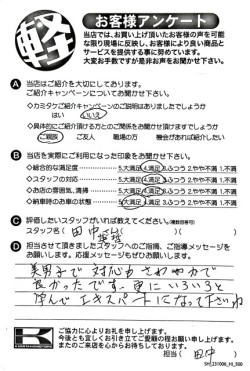 軽
お客様アンケート
当店では、お買い上げ頂いたお客様の声を可能
な限り現場に反映し、お客様により良い商品と
サービスを提供する事に努めています。
大変お手数ですが是非お声をお聞かせ下さい。
A 当店はご紹介を大切にしております。
ご紹介キャンペーンについてお聞かせ下さい。
◇カミタケご紹介キャンペーンのご説明はありましたでしょうか
はい いいえ
◇具体的にご紹介頂ける方とのご関係をお聞かせ頂けますでしょうか
ご親族 ご友人 職場の方 機会があれば紹介したい
B 当店を実際にご利用になった印象をお聞かせ下さい。
◇総合的な満足度 5大満足 4.満足 3.ふつう 2.やや不満 1.不満
◇スタッフの対応 5大満足 4.満足 3.ふつう 2.やや不満 1.不満
◇お店の雰囲気,清掃 5大満足 4.満足 3.ふつう 2.やや不満 1.不満
◇納車時のお車の状態 5大満足 4.満足 3.ふつう 2.やや不満 1.不満
C 評価したいスタッフがいれば教えてください。(複数回答可)
スタッフ名( 田中 )( )
D 担当させて頂きましたスタッフへのご指摘、ご指導メッセージを
お願いします。応援メッセージもぜひお願いします。
美男子で対応もさわやかで
良かったです。更にいろいろと
学んでエキスパートになって下さいね
K
ご協力に心よりお礼を申し上げます。
今後とも宜しくお引き立てご愛顧の程お願い申し上げます。
またのご来店を心からお待ちしております。
担当( 田中 )
SH_231006_HI_500